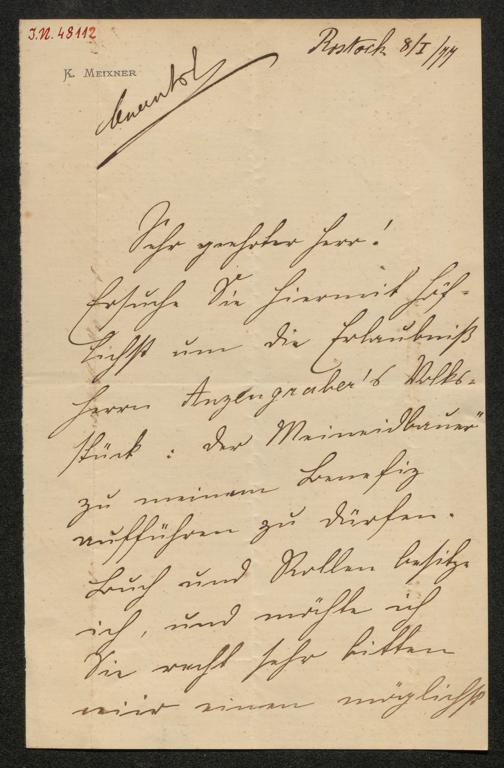 I.N. 48112
Rostock 8/I/77
K. MEIXNER
Sehr geehrter Herr!
Ersuche Sie hiermit höf-
lichst um die Erlaubniß
Herrn Anzengruber's Volks-
stück: der Meineidbauer"
zu meinem Benefiz
aufführen zu dürfen.
Buch und Rollen besitze
ich, und möchte ich
Sie recht sehr bitten
mir einen möglichst